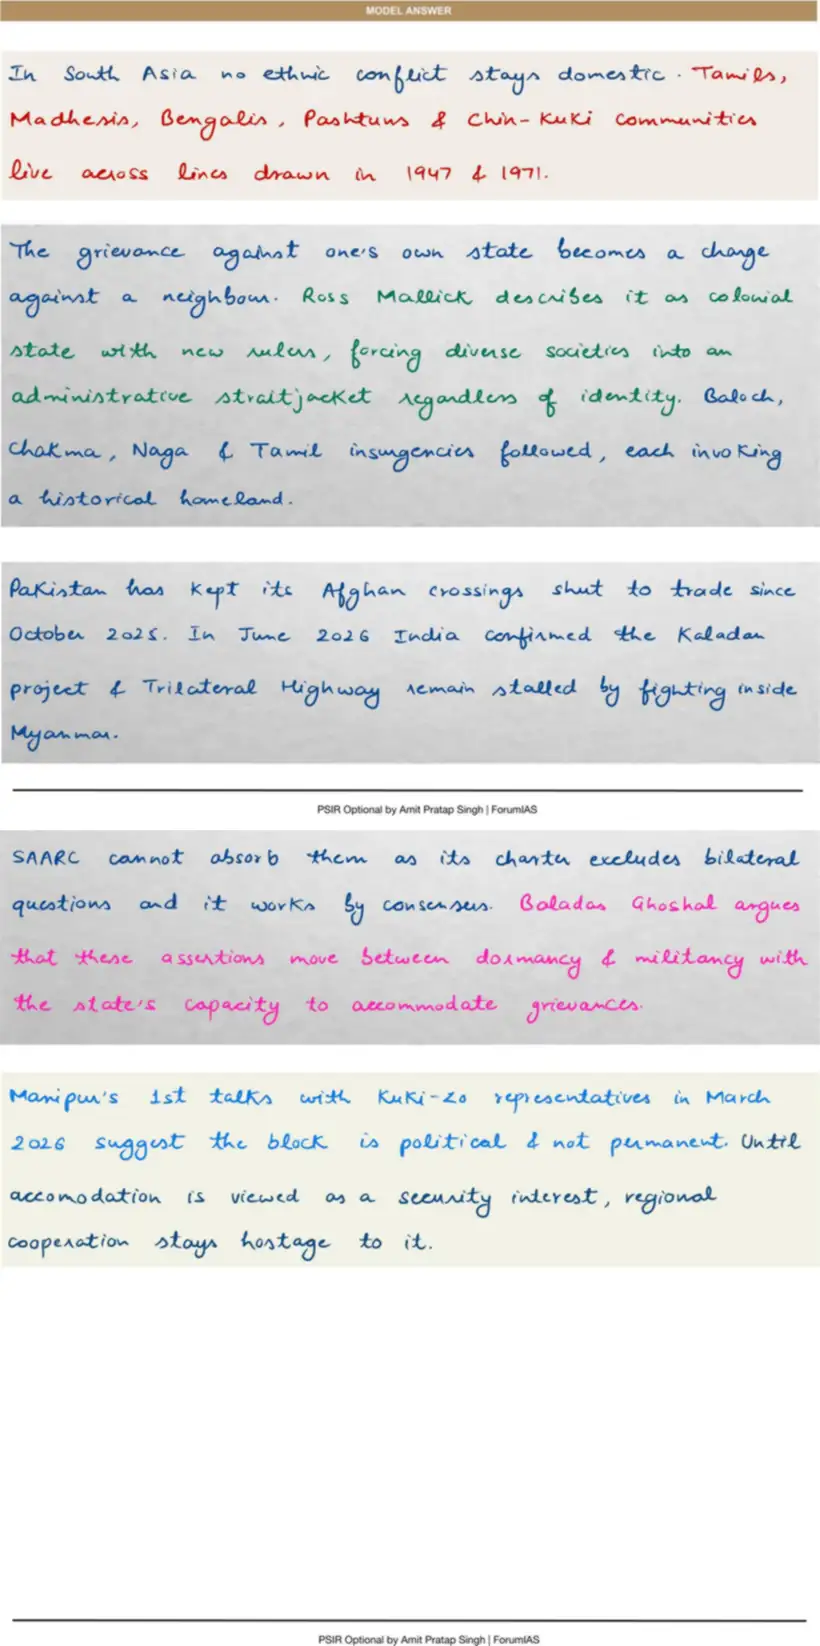 MODEL ANSWER
In South Asia no ethnic conflict stays domestic. Tamils,
Madhesis, Bengalis, Pashtuns & Chin-Kuki communities
live across lines drawn in 1947 & 1971.
The grievance against one's own state becomes a charge
against a neighbour. Ross Mallick describes it as colonial
state with new rulers, forcing diverse societies into an
administrative straitjacket regardless of identity. Baloch,
Chakma, Naga & Tamil insurgencies followed, each invoking
a historical homeland.
Pakistan has kept its Afghan crossings shut to trade since
October 2025. In June 2026 India confirmed the Kaladan
project & Trilateral Highway remain stalled by fighting inside
Myanmar.
PSIR Optional by Amit Pratap Singh | ForumIAS
SAARC cannot absorb them as its charter excludes bilateral
questions and it works by consensus. Baladas Ghoshal argues
that these assertions move between dormancy & militancy with
the state's capacity to accommodate grievances.
Manipur's 1st talks with Kuki-Zo representatives in March
2026 suggest the block is political & not permanent. Until
accomodation is viewed as a security interest, regional
cooperation stays hostage to it.
PSIR Optional by Amit Pratap Singh | ForumIAS